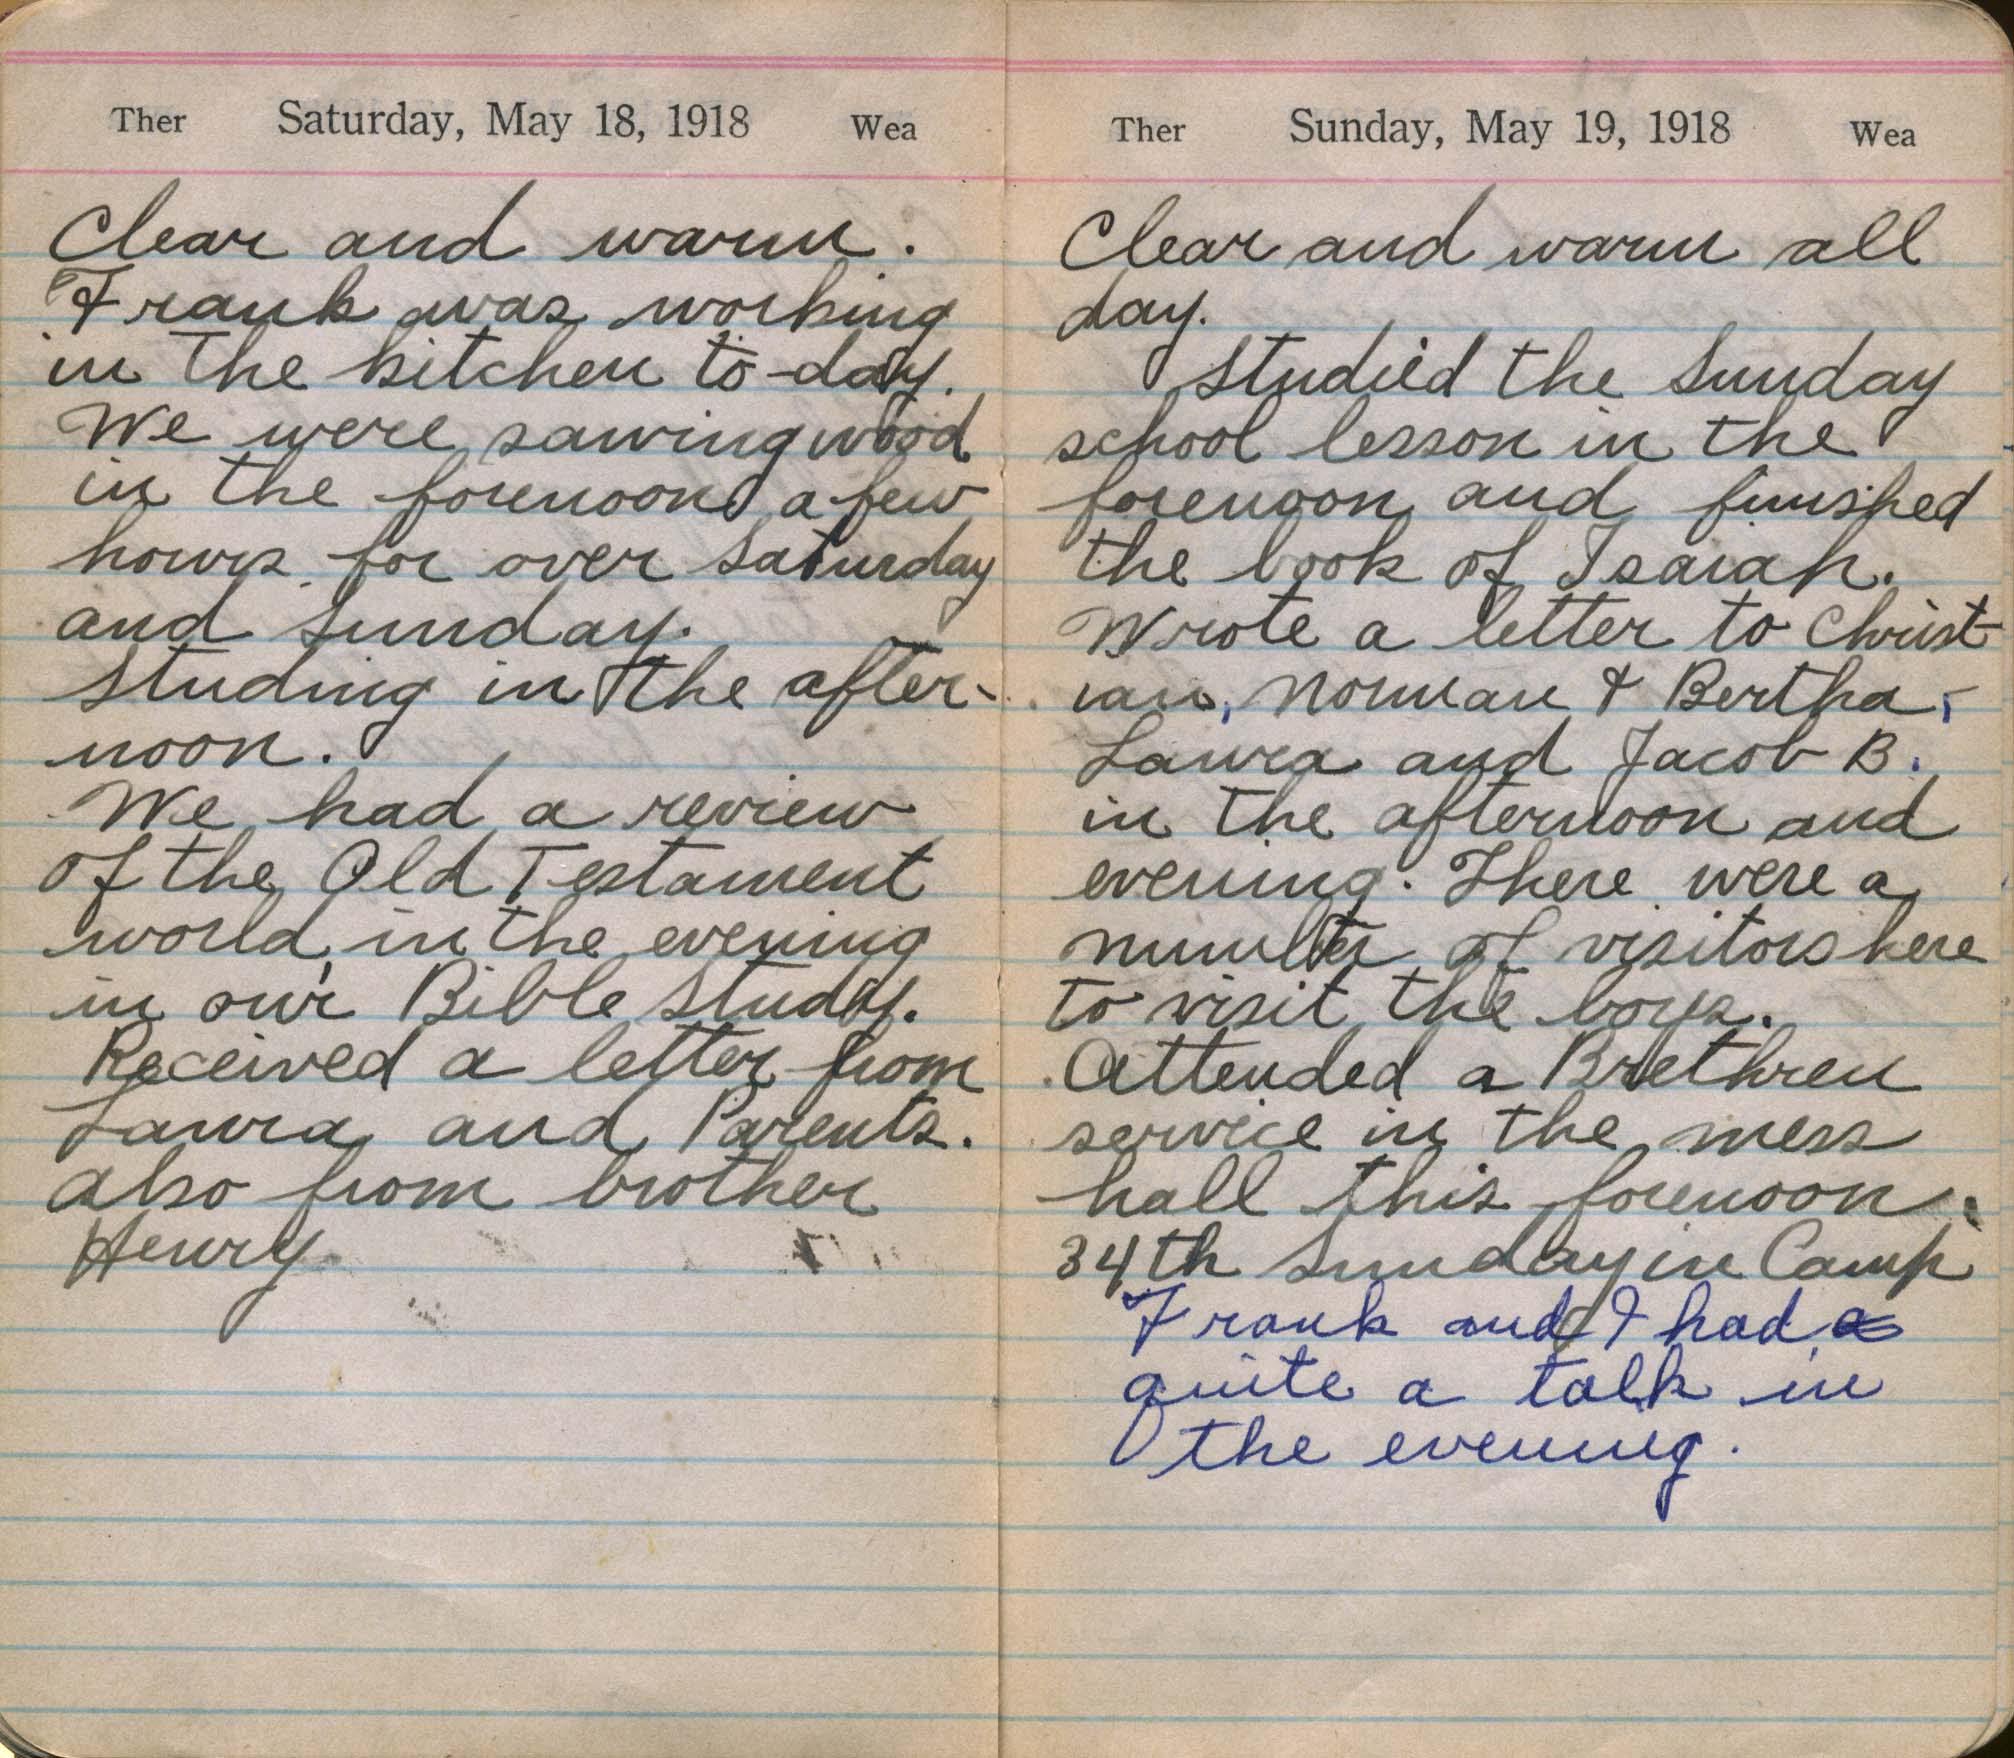 Ther Saturday, May 18, 1918 Wea
Clear and warm.
Frank was working
in the kitchen to-day.
We were sawing wood
in the forenoon a few
hours for over Saturday
and Sunday.
Studing in the after-
noon.
We had a review
of the Old Testament
world in the evening
in our Bible Study.
Received a letter from
Laura and Parents.
also from brother
Henry
Ther Sunday, May 19, 1918 Wea
Clear and warm all
day.
Studied the Sunday
school lesson in the
forenoon and finished
the book of Isaiah.
Wrote a letter to Christ-
ian, Norman & Bertha,
Laura and Jacob B.
in the afternoon and
evening. There were a
number of visitors here
to visit the boys.
Attended a Brethren
service in the mess
hall this forenoon.
34th Sunday in Camp
Frank and I had a
quite a talk in
the evening.